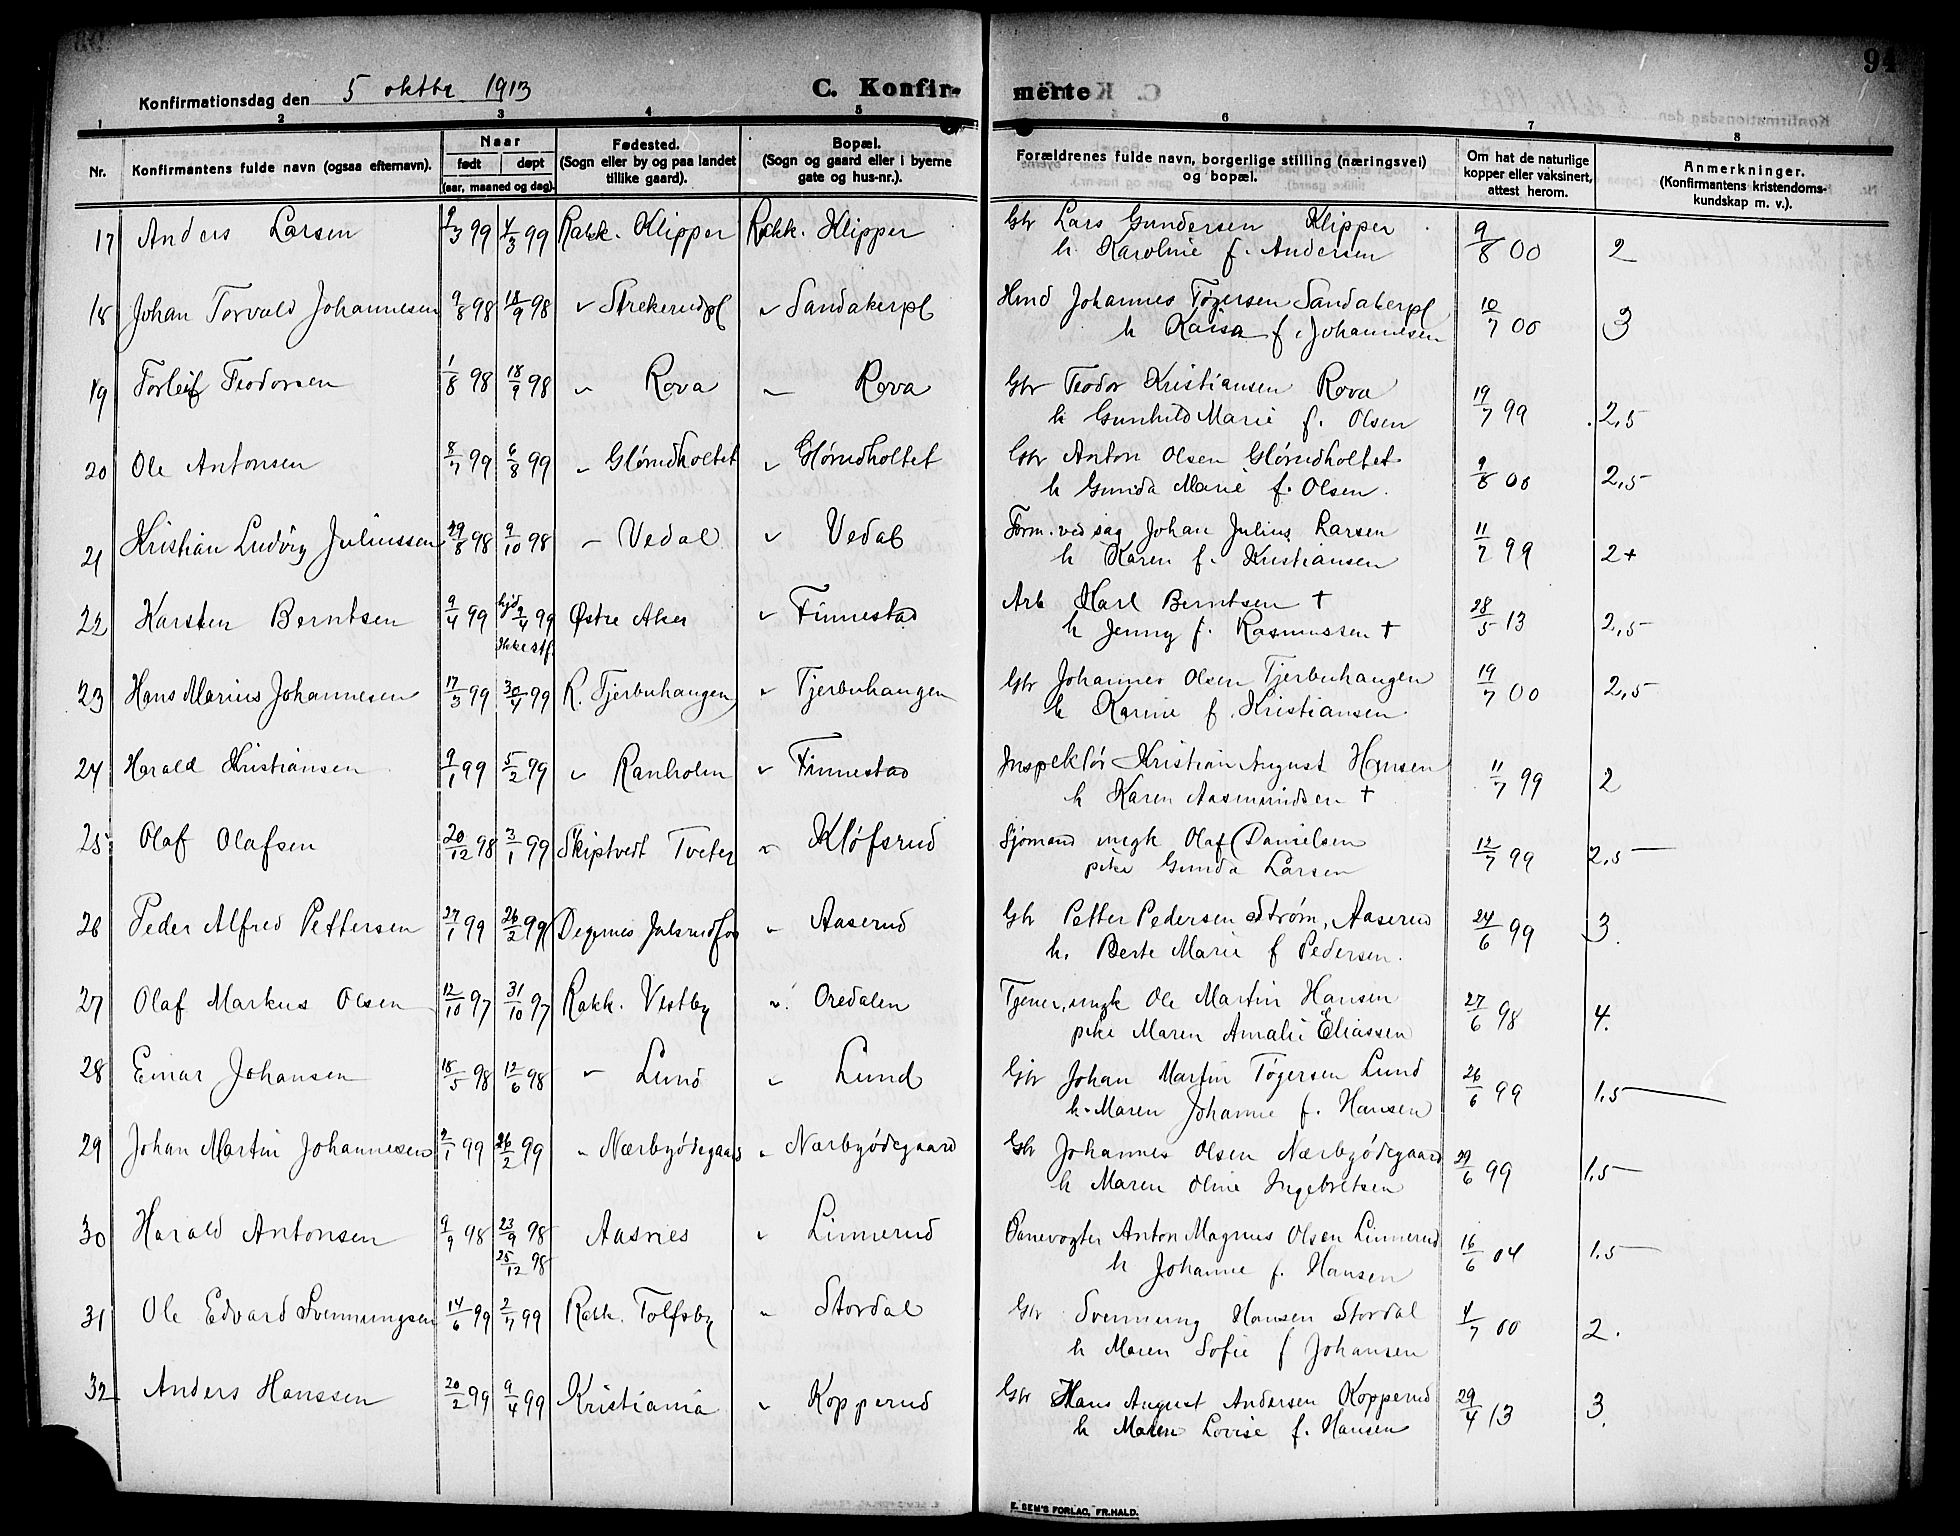 94
Konfirmationsdag den 5 oktbr 1913
C. Konfirmerte
1 2 3 4 5 6 7 8
Nr.
Konfirmantens fulde navn (ogsaa efternavn).
Naar
født døpt
(aar, maaned og dag).
Fødested.
(Sogn eller by og paa landet
tillike gaard).
Bopæl.
(Sogn og gaard eller i byerne
gate og hus-nr.).
Forældrenes fulde navn, borgerlige stilling (næringsvei)
og bopæl.
Om hat de naturlige
kopper eller vaksinert,
attest herom.
Anmerkninger.
(Konfirmantens kristendoms-
kundskap m. v.).
17 Anders Larsen 9/3 99 4/3 99 Rakk. Klipper Rakk. Klipper Gbr Lars Gundersen Klipper 9/8 00 2
h. Karoline f. Andersen
18 Johan Torvald Johannesen 9/8 98 18/9 98 " Strekerudpl " Sandakerpl Hmd Johannes Tøgersen Sandakerpl 10/7 00 3
h Kaisa f. Johannesen
19 Torleif Teodorsen 1/8 98 18/9 98 " Rova " Rova Gbr Teodor Kristiansen Rova 19/7 99 2,5
h Gunhild Marie f. Olsen
20 Ole Antonsen 8/7 99 6/8 99 " Glørudholtet " Glørudholtet Gbr Anton Olsen Glørudholtet 9/8 00 2,5
h Gunda Marie f. Olsen.
21 Kristian Ludvig Juliussen 29/8 98 9/10 98 " Vedal " Vedal Form. ved sag Johan Julius Larsen 11/7 99 2+
h Karen f. Kristiansen
22 Karsten Berntsen 9/4 99 hjd 9/4 99 Østre Aker " Finnestad Arb Karl Berntsen † 28/5 13 2,5
Ikke stf. h Jenny f. Rasmussen †
23 Hans Marius Johannesen 17/3 99 30/4 99 R. Tjerbuhaugen " Tjerbuhaugen Gbr Johannes Olsen Tjerbuhaugen 19/7 00 2,5
h Karine f. Kristiansen
24 Harald Kristiansen 9/1 99 5/2 99 " Ranholm " Finnestad Inspektør Kristian August Hansen 11/7 99 2
h Karen Aasmundsen †
25 Olaf Olafsen 20/12 98 3/1 99 Skiptvedt Tveter " Kløfsrud Sjømand ungk Olaf Danielsen 12/7 99 2,5
pike Gunda Larsen
26 Peder Alfred Pettersen 27/1 99 26/2 99 Degernes Julsrudfos " Aaserud Gbr Petter Pedersen Strøm, Aaserud 24/6 99 3.
h. Berte Marie f Pedersen.
27 Olaf Markus Olsen 12/10 97 31/10 97 Rakk. Vestby " Oredalen Tjener, ungk Ole Martin Hansen 27/6 98 4.
pike Maren Amalie Eliassen
28 Einar Johansen 18/5 98 12/6 98 " Lund " Lund Gbr Johan Martin Tøgersen Lund 26/6 99 1,5
h. Maren Johanne f. Hansen
29 Johan Martin Johannesen 2/1 99 26/2 99 " Nærbyødegaard " Nærbyødegaard Gbr Johannes Olsen Nærbyødegaard 29/6 99 1,5
h Maren Oline Ingebretsen
30 Harald Antonsen 9/9 98 23/9 98 Aasnes " Linnerud Banevogter Anton Magnus Olsen Linnerud 16/6 04 1.5
25/12 98 h Johanne f. Hansen
31 Ole Edvard Svenningsen 14/6 99 2/7 99 Rakk. Tolfsby " Stordal Gbr Svenning Hansen Stordal 4/7 00 2.
h Maren Sofie f Johansen
32 Anders Hanssen 20/2 99 9/4 99 Kristiania " Kopperud Gbr Hans August Andersen Kopperud 29/4 13 3.
h Maren Lovise f. Hansen
E. SEM'S FORLAG, FR.HALD.